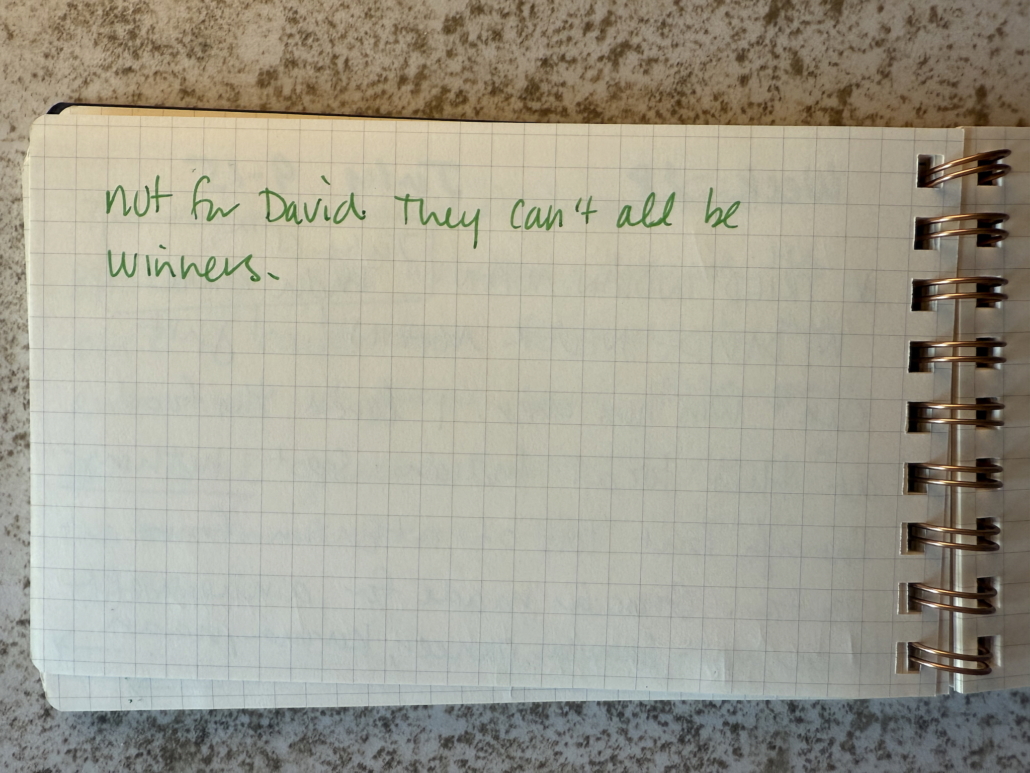 not for David. They can't all be
winners.